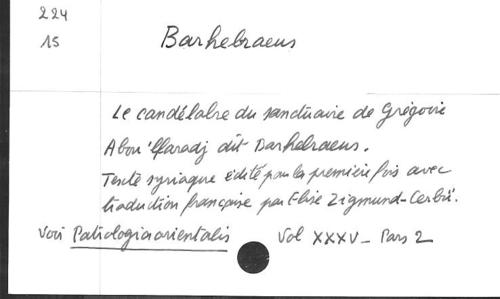 224
15
Barhebraeus
Le candélabre du sanctuaire de Grégoire
Abou'lfaradj dit Barhebraeus.
Texte syriaque édité pour la première fois avec
traduction française par Elise Zigmund-Cerbü.
Voir Patrologia orientalis Vol XXXV - Pars 2